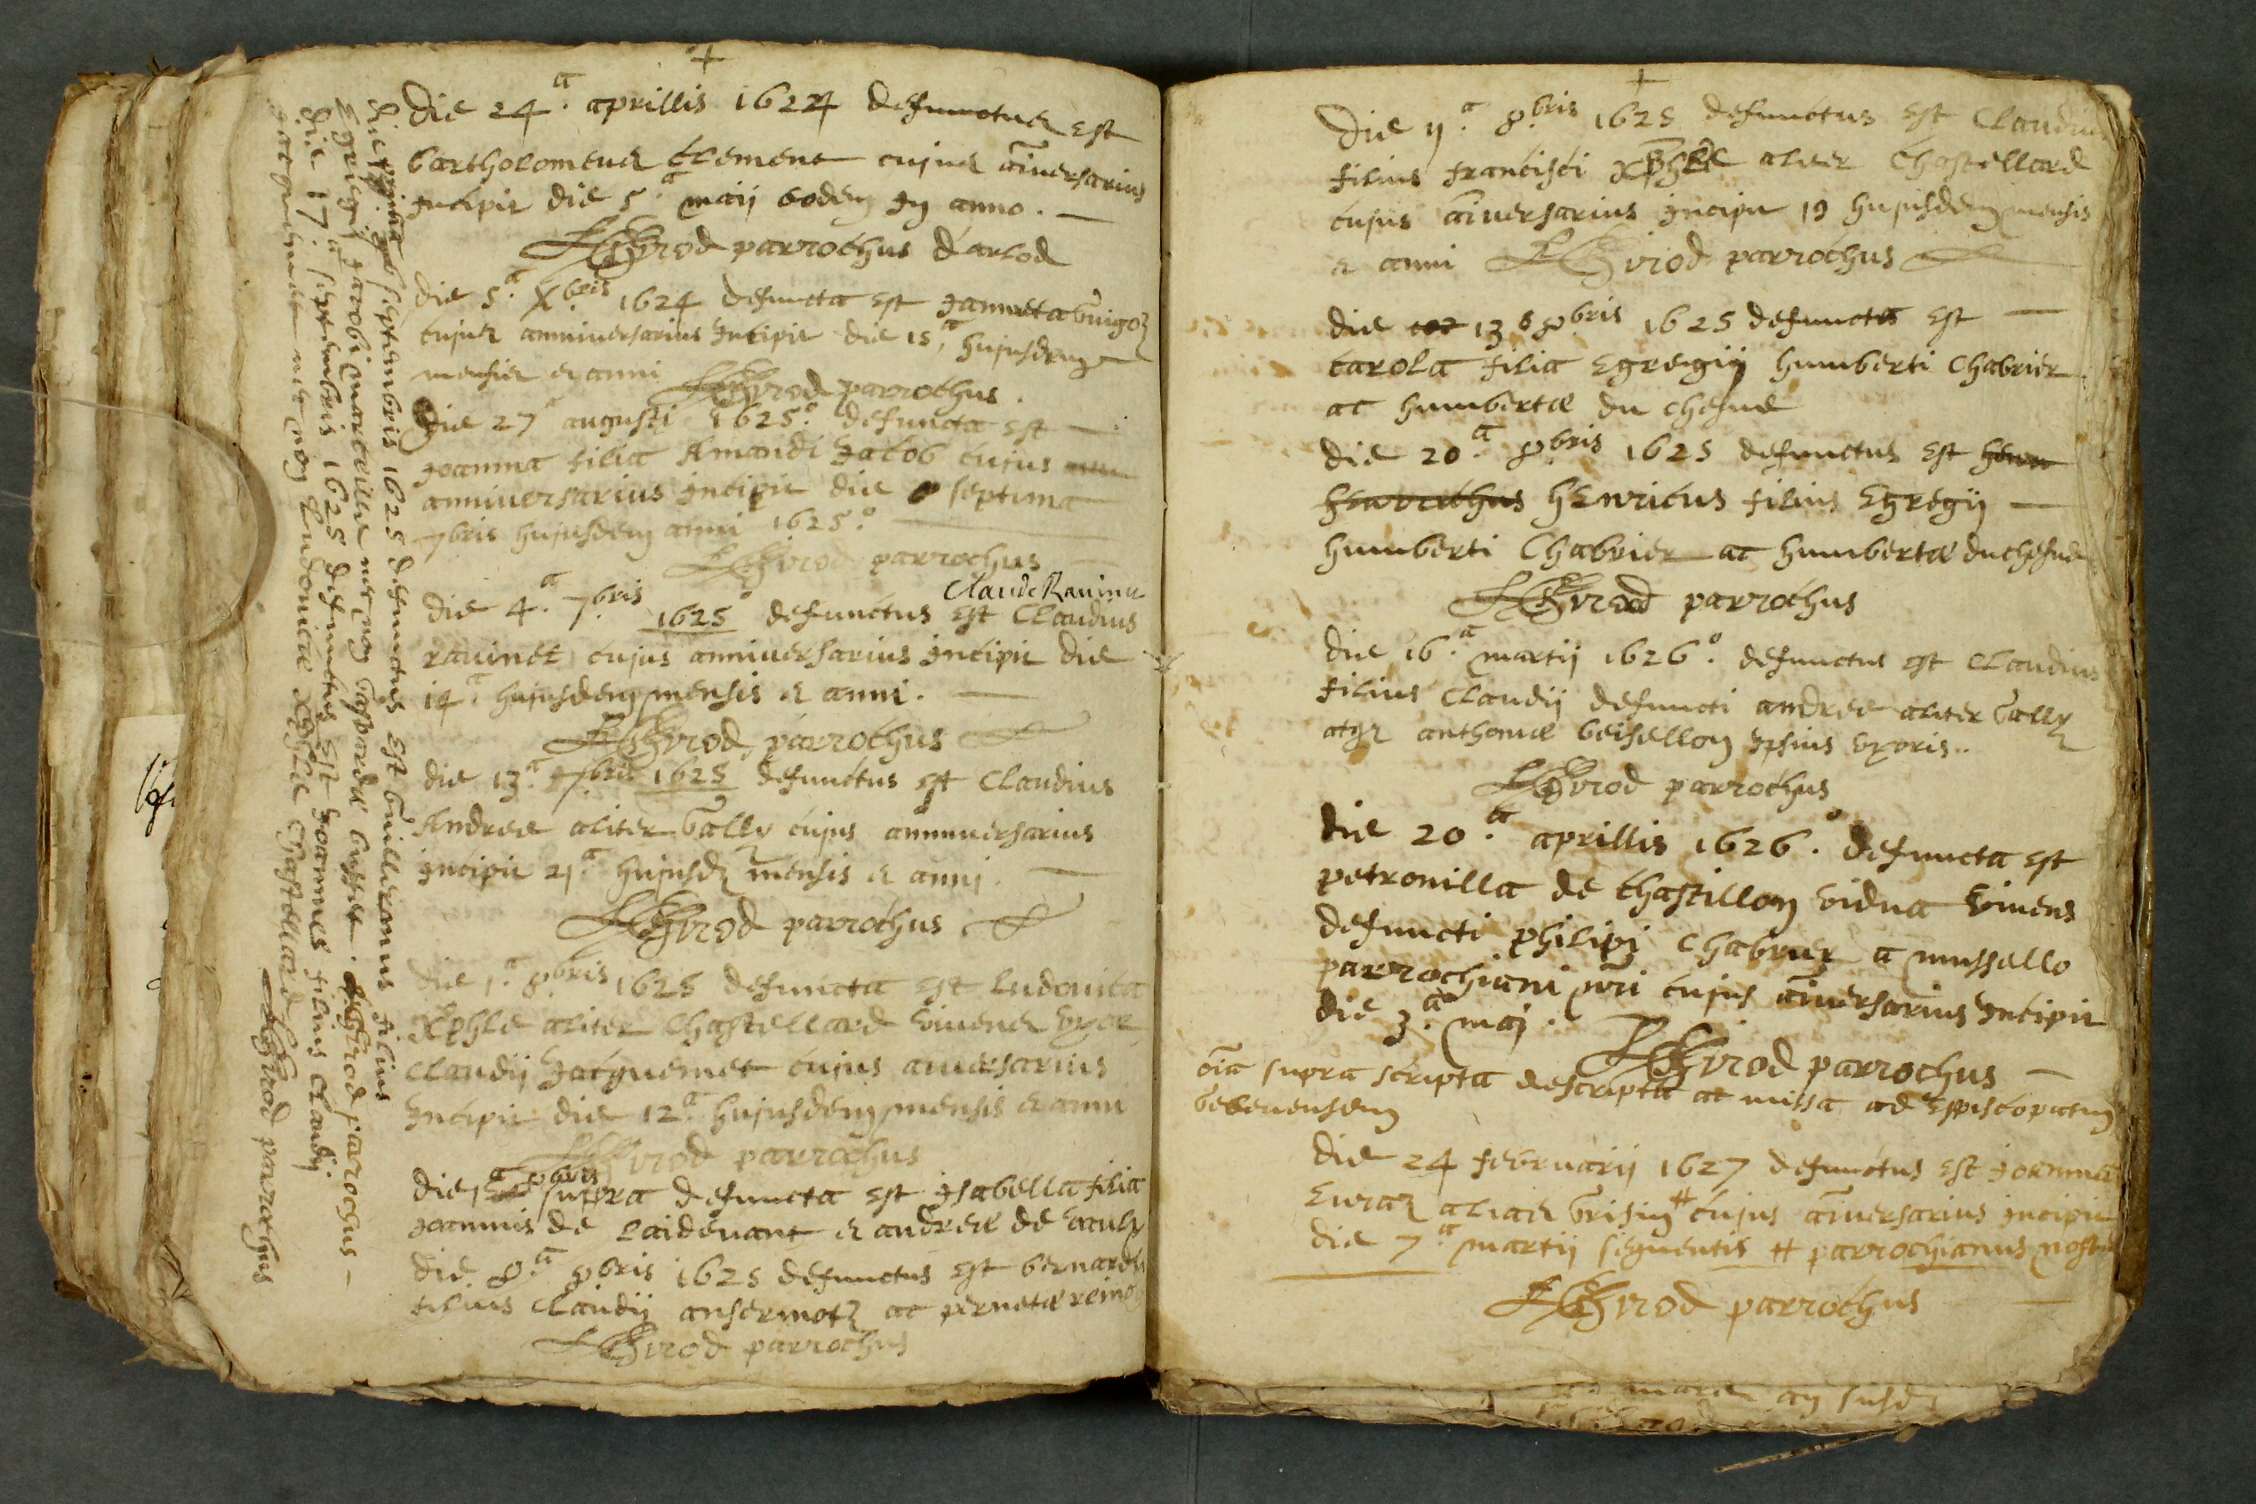 +
Die 24.a aprillis 1624 defunctus est
bartholomeus Clement cujus aiversarius
Incipit die 5.a maij eodem In anno.
Girod parrochus d'arlod
die 5.a Xbris 1624 defuncta est Janneta
cujus anniversarius Incipit die 15.a hujusdem
mensis et anni Girod parrochus.
Die 27a augusti 1625.o defuncta est
Joanna filia Amandi Jacob cujus
anniversarius Incipit die septima
7bris hujusdem anni 1625.o
Girod parrochus
Claude Ravinet
die 4.a 7bris 1625o defunctus est Claudius
ravinet cujus anniversarius Incipit die
14.a hujusdem mensis et anni.
Girod parrochus
die 13.a 7bris 1625 defunctus est Claudius
Andree aliter Vally cujus anniversarius
Incipit 21.a hujusd mensis et anni.
Girod parrochus
die 1.a 8bris 1625 defuncta est Ludovica
Xphle aliter Chastellard vivens vxor
Claudij Jacquemet cujus aiversarius
Incipit die 12.a hujusdem mensis et anni
Girod parrochus
die 8bris supra defuncta est Isabella filia
Joannis de Laidevant et andreæ de
die 8.a 8bris 1625 defunctus est bernardus
filius Claudij ansermoz ac pernetæ
Girod parrochus
die septembris 1625 defunctus est Guillermus filius
Egregij Jacobi necnon Gasparde bussct. Girod parochus
Die 17a septembris 1625 defunctus est Joannes filius Claudij
Jacquemet necnon Ludovicæ Xphle Chastellard Girod parrochus
+
Die 11.a 8bris 1625 defunctus est Claudius
filius francisci Xphle aliter Chastellard
cujus aiversarius Incipit 19 hujusdem mensis
et anni Girod parrochus
die 13 8bris 1625 defuncta est
Carola filia Egregij humberti Chabrier
ac humbertæ du chesne
die 20.a 8bris 1625 defunctus est
henricus filius Egregij
humberti Chabrier ac humbertæ duchesne
Girod parrochus
die 16.a martij 1626.o defunctus est Claudius
filius Claudij defuncti andree aliter Vally
atq anthoniæ beisellon Ipsius vxoris..
Girod parrochus
die 20.a aprillis 1626.o defuncta est
petronilla de Chastillon vidua vivens
defuncti philipi Chabrier a mussello
parrochiani nri cujus aiversarius Incipit
die 3.a maj. Girod parrochus
oia supra scripta descripta ac missa ad Episcopatum
Gebenensem
die 24 februarij 1627 defunctus est Joannes
alias # cujus aiversarius Incipit
die 7.a martij sequentis # parrochianus noster
Girod parrochus